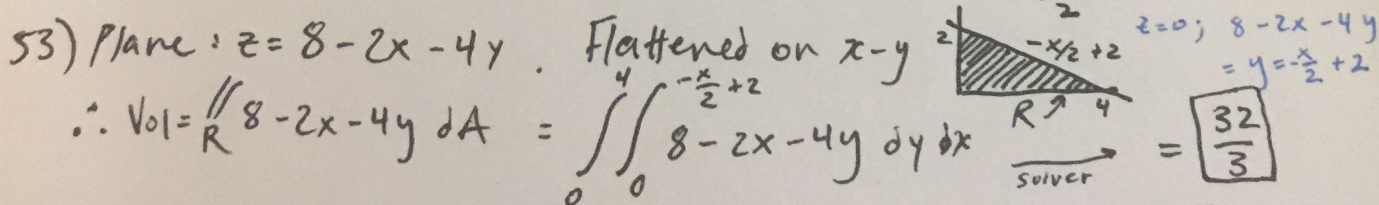 53) Plane: z = 8 - 2x - 4y . Flattened on x-y 2 2 -x/2 + 2 R 4 z=0; 8 - 2x - 4y
= y = -x/2 + 2
∴ Vol = ∬_R 8 - 2x - 4y dA = ∫_0^4 ∫_0^{-x/2 + 2} 8 - 2x - 4y dy dx → solver = 32/3